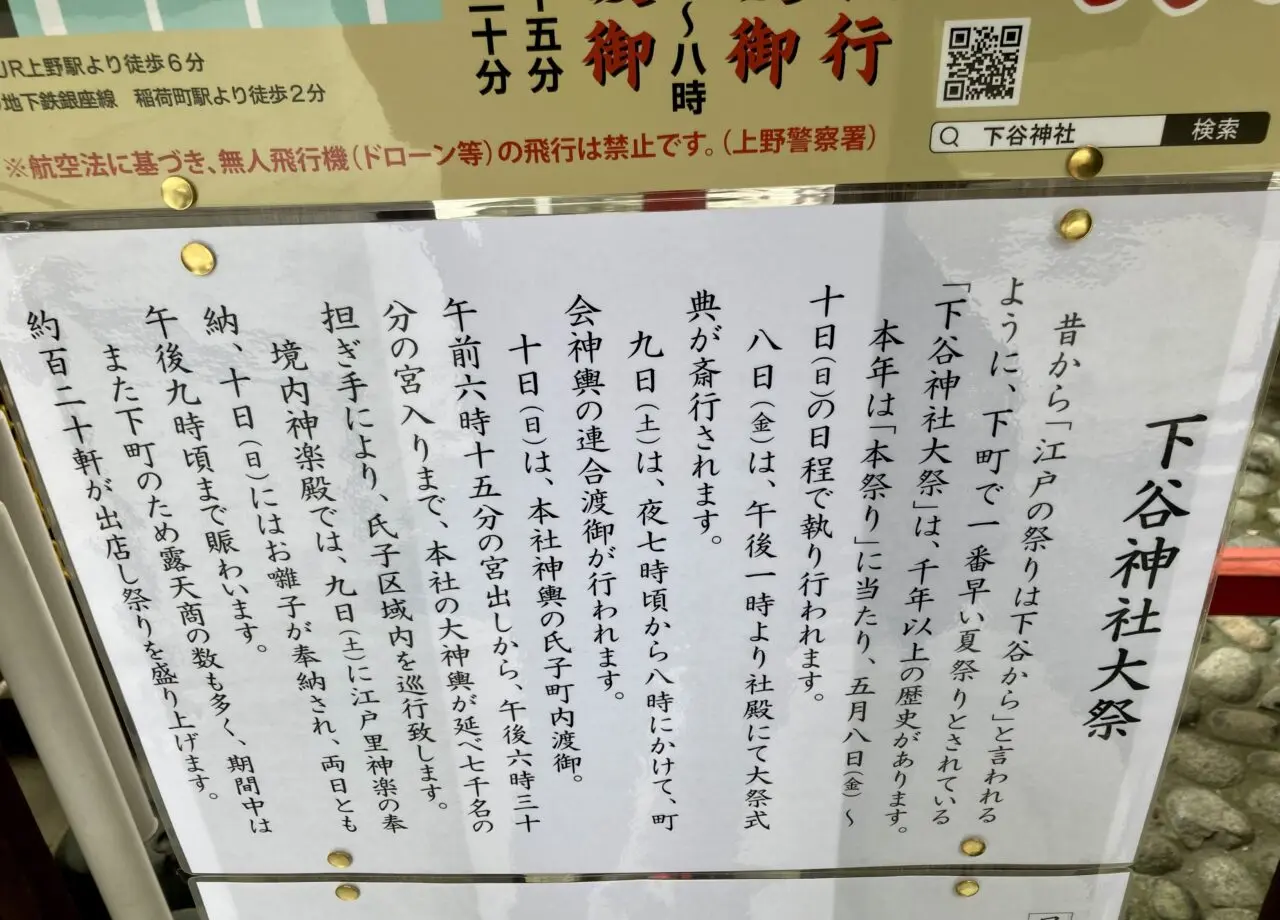 JR上野駅より徒歩6分
地下鉄銀座線 稲荷町駅より徒歩2分
行
御
〜八時
御
十五分
二十分
下谷神社
検索
※航空法に基づき、無人飛行機(ドローン等)の飛行は禁止です。(上野警察署)
下谷神社大祭
昔から「江戸の祭りは下谷から」と言われる
ように、下町で一番早い夏祭りとされている
「下谷神社大祭」は、千年以上の歴史があります。
本年は「本祭り」に当たり、五月八日(金)〜
十日(日)の日程で執り行われます。
八日(金)は、午後一時より社殿にて大祭式
典が斎行されます。
九日(土)は、夜七時頃から八時にかけて、町
会神輿の連合渡御が行われます。
十日(日)は、本社神輿の氏子町内渡御。
午前六時十五分の宮出しから、午後六時三十
分の宮入りまで、本社の大神輿が延べ七千名の
担ぎ手により、氏子区域内を巡行致します。
境内神楽殿では、九日(土)に江戸里神楽の奉
納、十日(日)にはお囃子が奉納され、両日とも
午後九時頃まで賑わいます。
また下町のため露天商の数も多く、期間中は
約百二十軒が出店し祭りを盛り上げます。